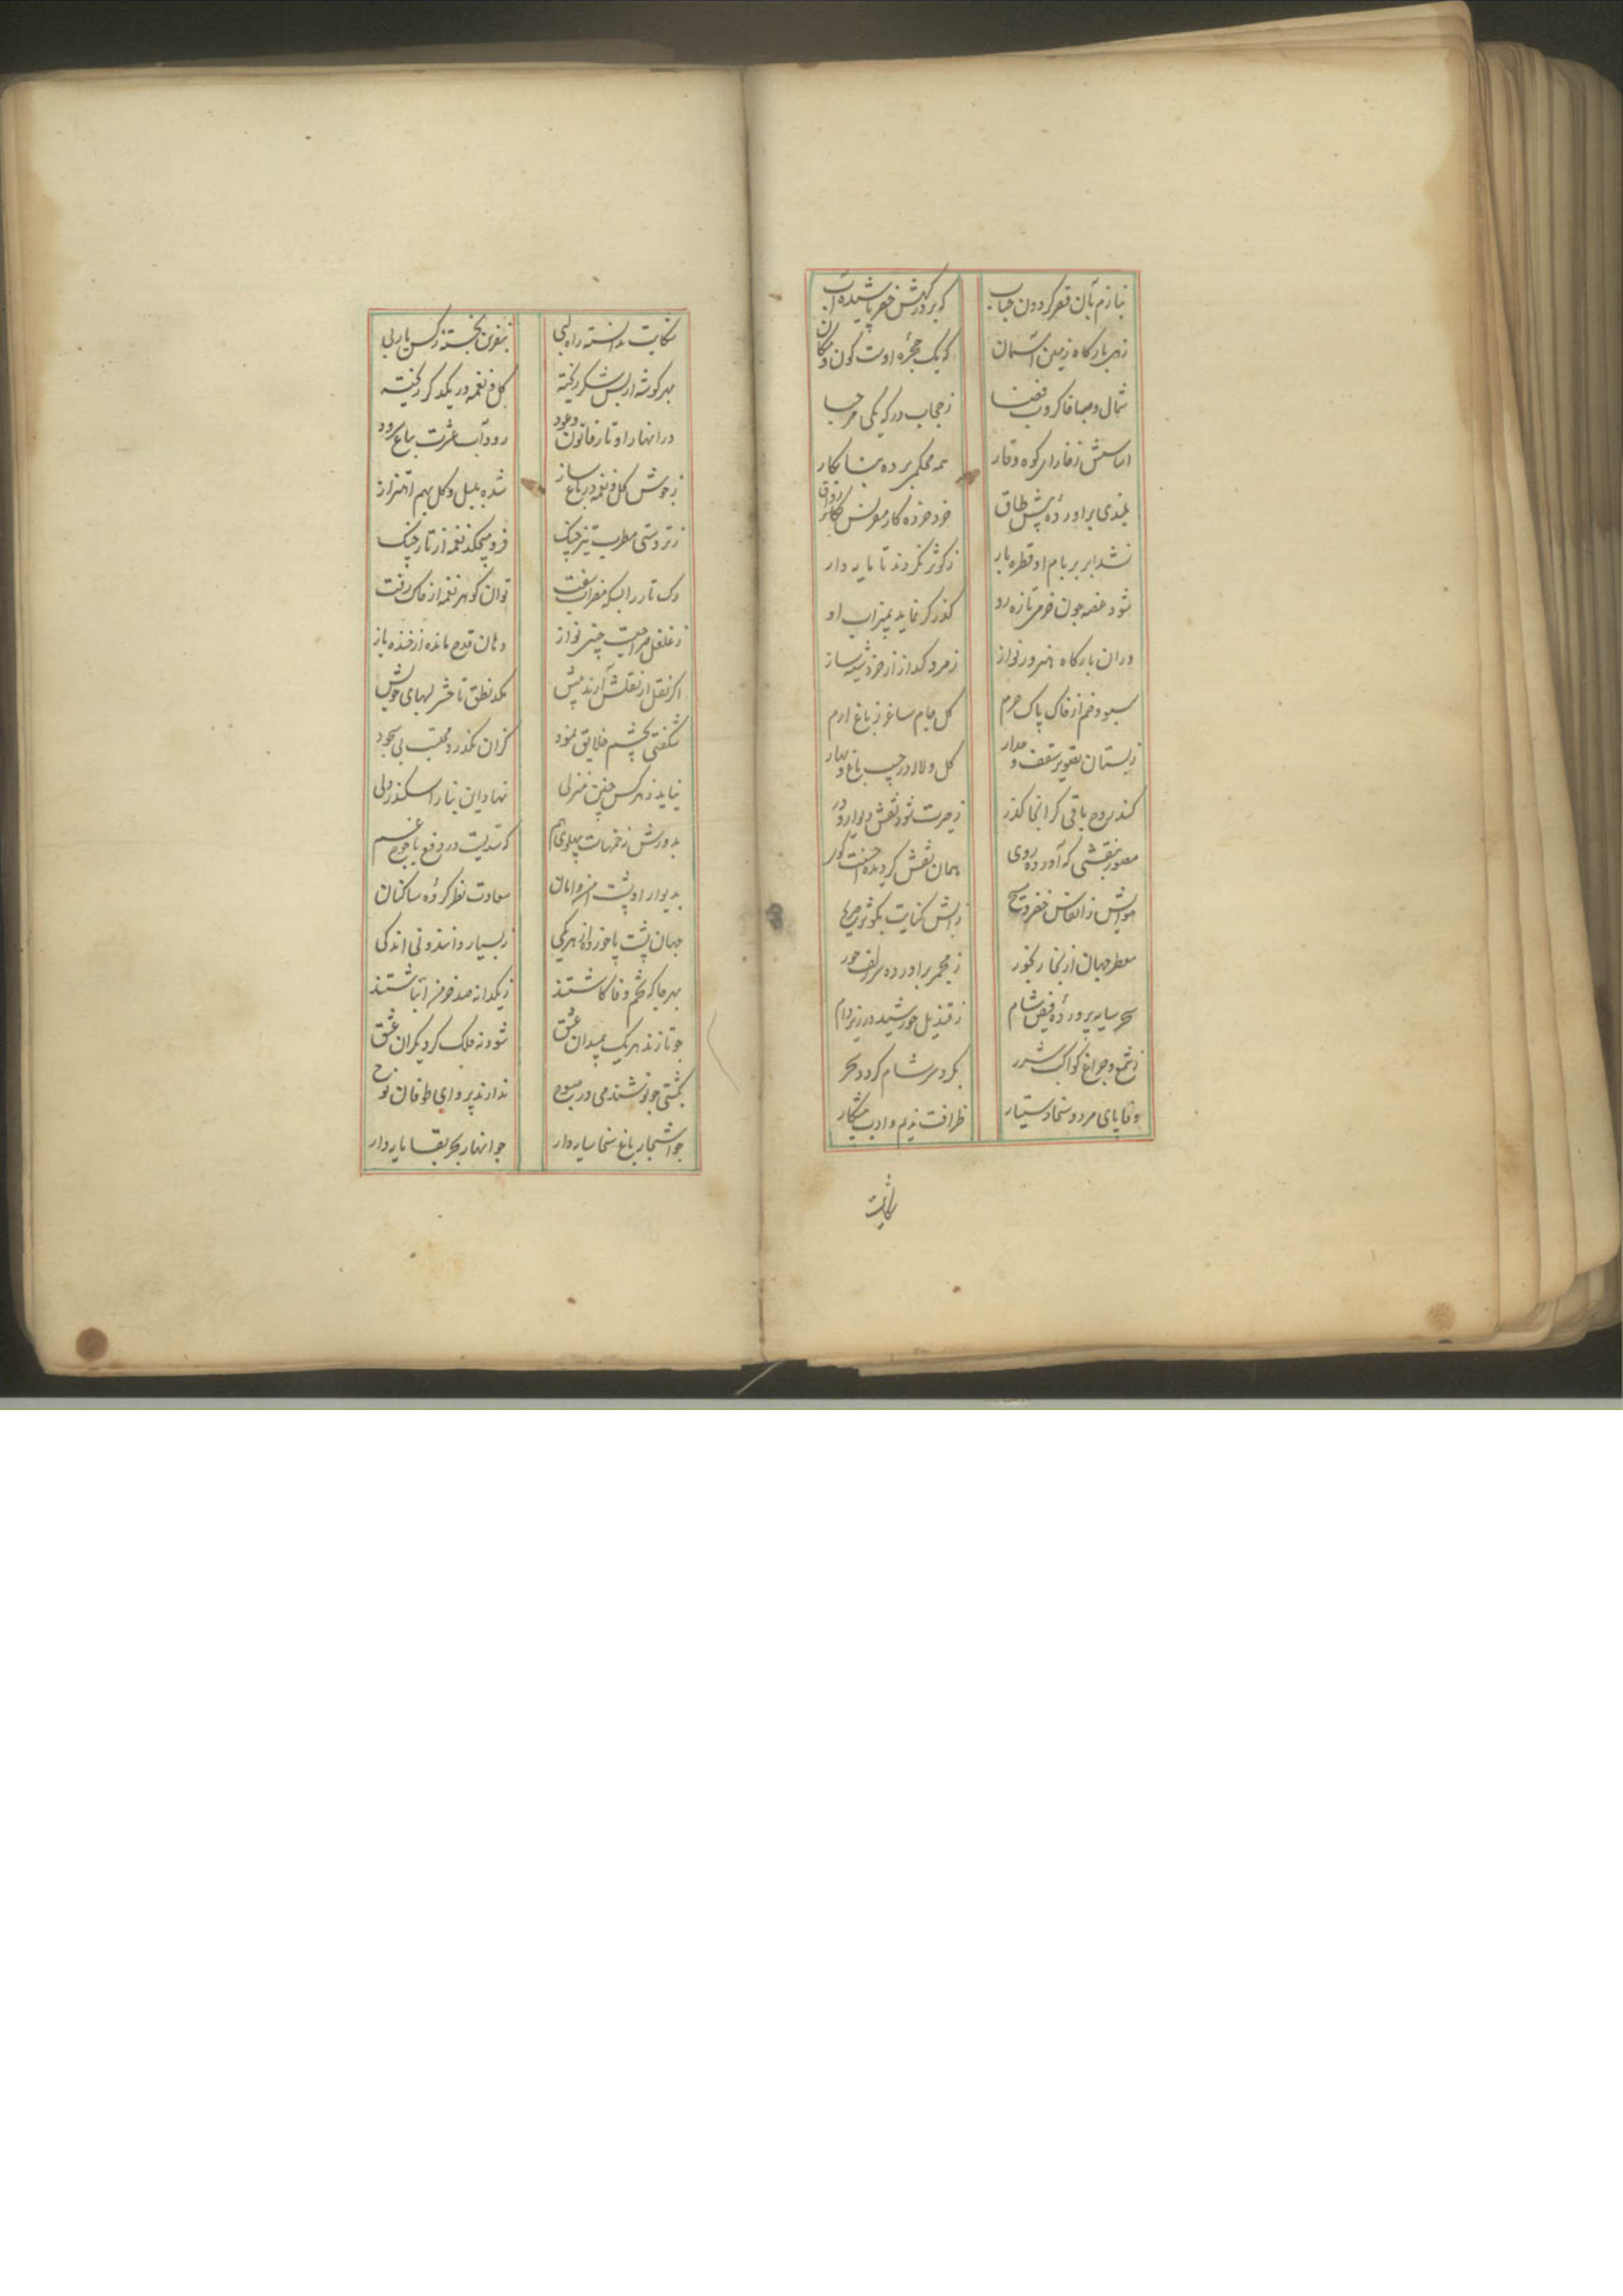 بنازم بآن قصر کردون جناب که بر درکهش خضر پاشیده آب
زهی بارکاه زمین آسمان که یک حجره اوست کون و مکان
شمال و صبا خاکروب فضا ز حجاب درکه یکی مرحبا
اساسش ز خارای کوه وقار همه محکمی برده بنا بکار
بلندی براورده پیش طاق خود خرده کار مقرنس رواق
نشد ابر بر بام او قطره بار ز کوثر نکردند تا مایه دار
شود غصه چون خرمی تازه رو کذر کر نماید بمیزاب او
دران بارکاه هنرور نواز زمرد کداز از خزف شیشه ساز
سبو و خم از خاک پاک حرم کل جام ساغر ز باغ ارم
ز بستان تصویر سقف و جدار کل و لاله در جیب باغ و بهار
کند روح باقی کر انجا کذر ز حیرت شود نقش دیوار و در
مصور بنقشی که آورده روی همان نقش کردیده احسنت کوی
هوایش ز انفاس خضر و مسیح ز آبش کنایت بکوثر صریح
معطر جهان از بخار بخور ز مجمر براورده سر زلف حور
سحر سایه پرورده فیض شام ز قندیل خورشید در زیر دام
ز شمع و چراغ کواکب شرر بکرد سر شام کردد سحر
وفا پای مرد و سخا دستیار ظرافت ندیم و ادب پیشکار
شکایت
شکایت ندانسته راه لبی بنفرین نجسته ز کس یاربی
بهر کوشه از بس شکر ریخته کل و نغمه در یکدکر ریخته
در انهار اوتار قانون و عود رود آب عشرت بباغ سرود
ز جوش کل و نغمه در باغ ساز شده بلبل و کل بهم اهتزاز
ز تردستی مطرب تیز چنک فرو میچکد نغمه از تار چنک
رک تار را بسکه مضراب سفت توان کوهر نغمه از خاک رفت
ز غلغل صراحیست چینی نواز دهان قدح مانده از خنده باز
اکر نقل از نقلش آرند پیش مکد نطق تا حشر لبهای خویش
شکفتی بچشم خلایق نمود کزان نکذرد محتسب بی سجود
نیاید ز هر کس چنین منزلی نهاد این بنا را سکندر دلی
بدورش ز خمهاست پهلوی هم که سدیست در دفع یاجوج غم
بدیوار او پشت امن و امان سعادت نظر کرده ساکنان
جهان پشت پا خورده از هر یکی ز بسیار دانند و نی اندکی
بهر جا که تخم وفا کاشتند ز یکدانه صد خرمن انباشتند
چو تازند هر یک بمیدان عشق شود نه فلک کرد یکران عشق
بکشتی چو نوشند می در صبوح ندارند پروای طوفان نوح
چو اشجار باغ سخا سایه دار چو انهار بحر بقا مایه دار